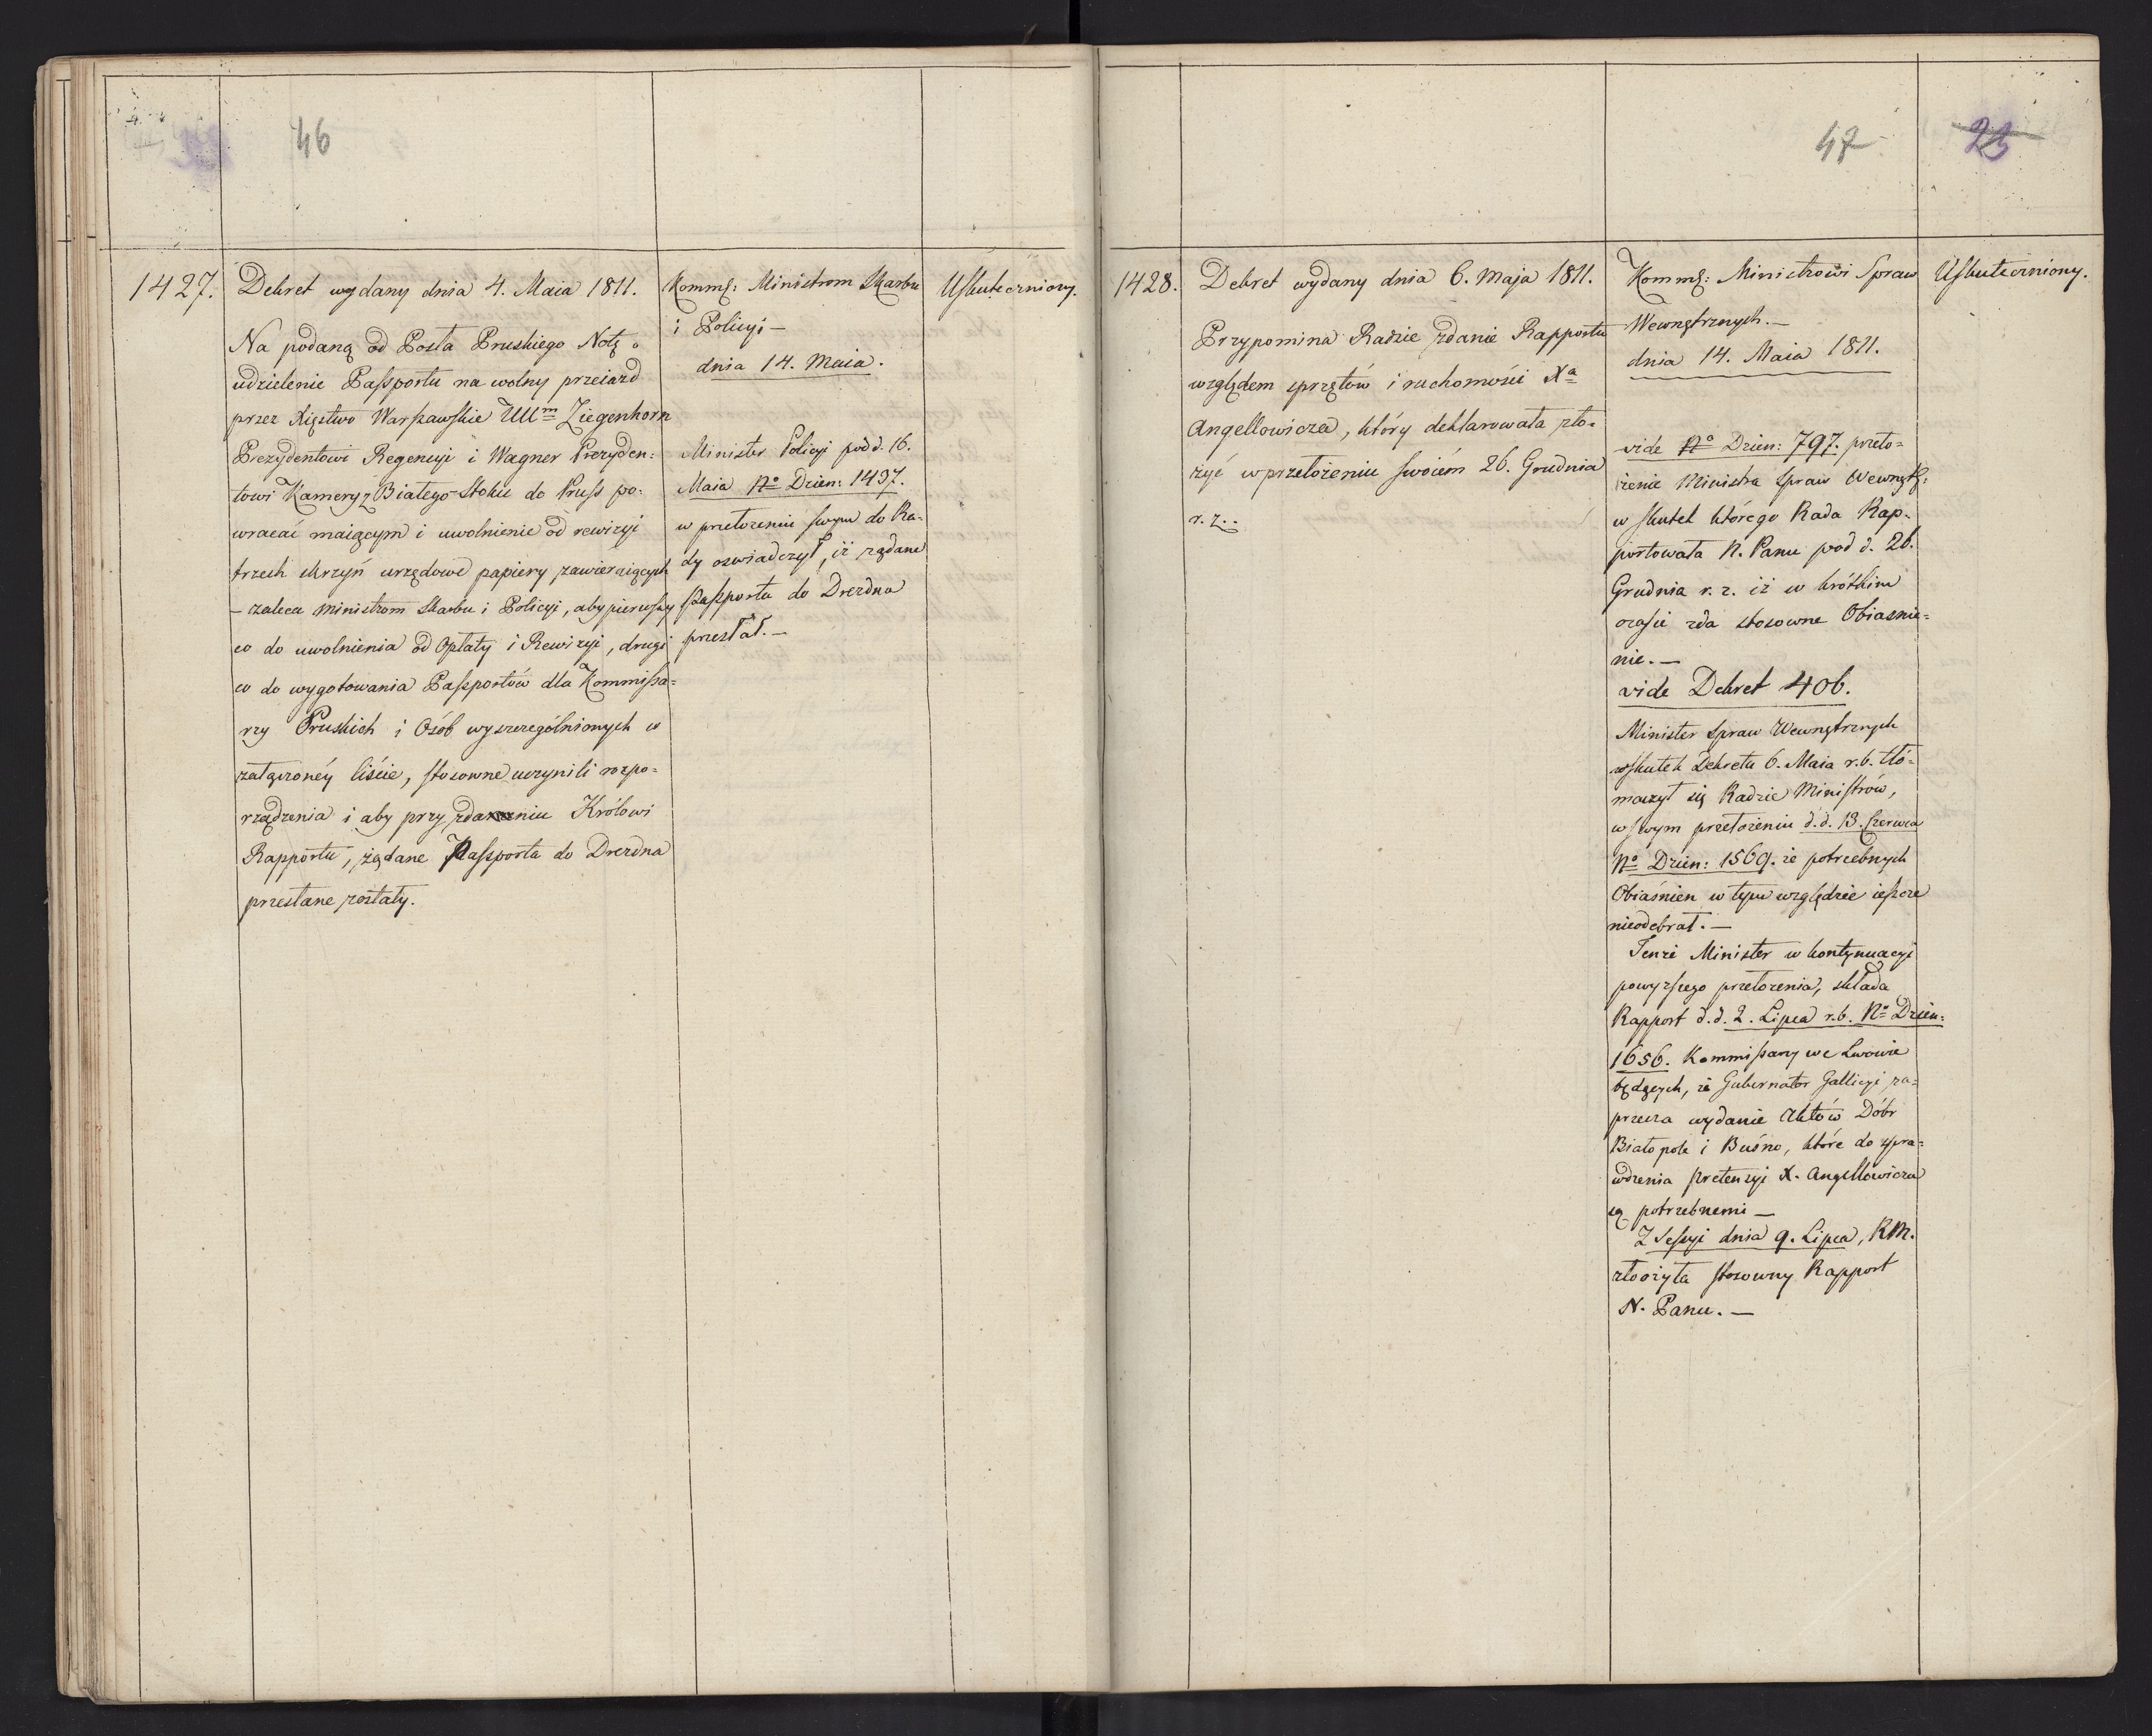 46
1427.
Dekret wydany dnia 4. Maia 1811.
Na podaną od Posła Pruskiego Notę o
udzielenie Passportu na wolny przeiazd
przez Xięstwo Warszawskie UUm Ziegenhorn
Prezydentowi Regencyi i Wagner Prezyden:
towi Kamery z Białego-Stoku do Pruss po:
wracać maiącym i uwolnienie od rewizyi
trzech skrzyń urzędowe papiery zawieraiących
– zaleca Ministrom Skarbu i Policyi, aby pierwszy
co do uwolnienia od Opłaty i Rewizyi, drugi
co do wygotowania Passportów dla Kommissa=
rzy Pruskich i Osób wyszczególnionych w
załączonéy liście, stosowne uczynili rozpo=
rządzenia i aby przy zdaniu Królowi
Rapportu, żądane Passporta do Drezdna
przesłane zostały.
Kommf: Ministrom Skarbu
i Policyi –
dnia 14. Maia.
Minister Policyi pod d. 16.
Maia No Dzien: 1437.
w przełożeniu swym do Ra-
dy oswiadczył, iż rządane
Passporta do Drezdna
przesłał. –
Uskuteczniony.
47
23
1428.
Dekret wydany dnia 6. Maja 1811.
Przypomina Radzie zdanie Rapportu
względem sprzętów i ruchomości Xa
Angellowicza, który deklarowała zło-
żyć w przełożeniu swoiém 26. Grudnia
r. z..
Kommf: Ministrowi Spraw
Wewnętrznych. –
dnia 14. Maia 1811.
vide No Dzien: 797. przeło=
żenie Ministra Spraw Wewnętz:
w skutek którego Rada Rap-
portowała N. Panu pod d. 26.
Grudnia r. z. iż w krótkim
czasie zda stosowne Obiasnie=
nie. –
vide Dekret 406.
Minister Spraw Wewnętrznych
wskutek Dekretu 6. Maia r. b. tłó-
maczył się Radzie Ministrów,
w swym przełożeniu d. d. 13. Czerwca
No Dzien: 1569. że potrzebnych
Obiaśnien w tym względzie ieszcze
nieodebrał. –
Tenże Minister w kontynuacyi
powyższego przełożenia, składa
Rapport d. d. 2. Lipca r. b. No Dzien:
1656. Kommissarzy we Lwowie
będących, że Gubernator Gallicyi za=
przecza wydanie Aktów Dóbr
Białopole i Buśno, które do spra=
wdzenia pretensyi X. Angellowicza
są potrzebnemi –
Z Sessyi dnia 9. Lipca, RM.
złożyła stosowny Rapport
N. Panu. –
Uskuteczniony.